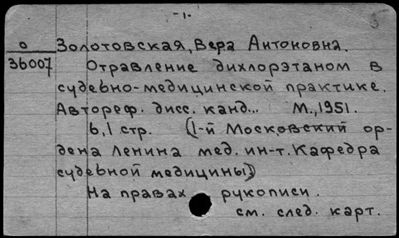 -1.
5
о Золотовская, Вера Антоновна.
36007 Отравление дихлорэтаном в
судебно-медицинской практике.
Автореф. дисс. канд... М., 1951.
6,1 стр. (1-й Московский ор-
дена Ленина мед. ин-т. Кафедра
судебной медицины)
На правах рукописи.
см. след. карт.